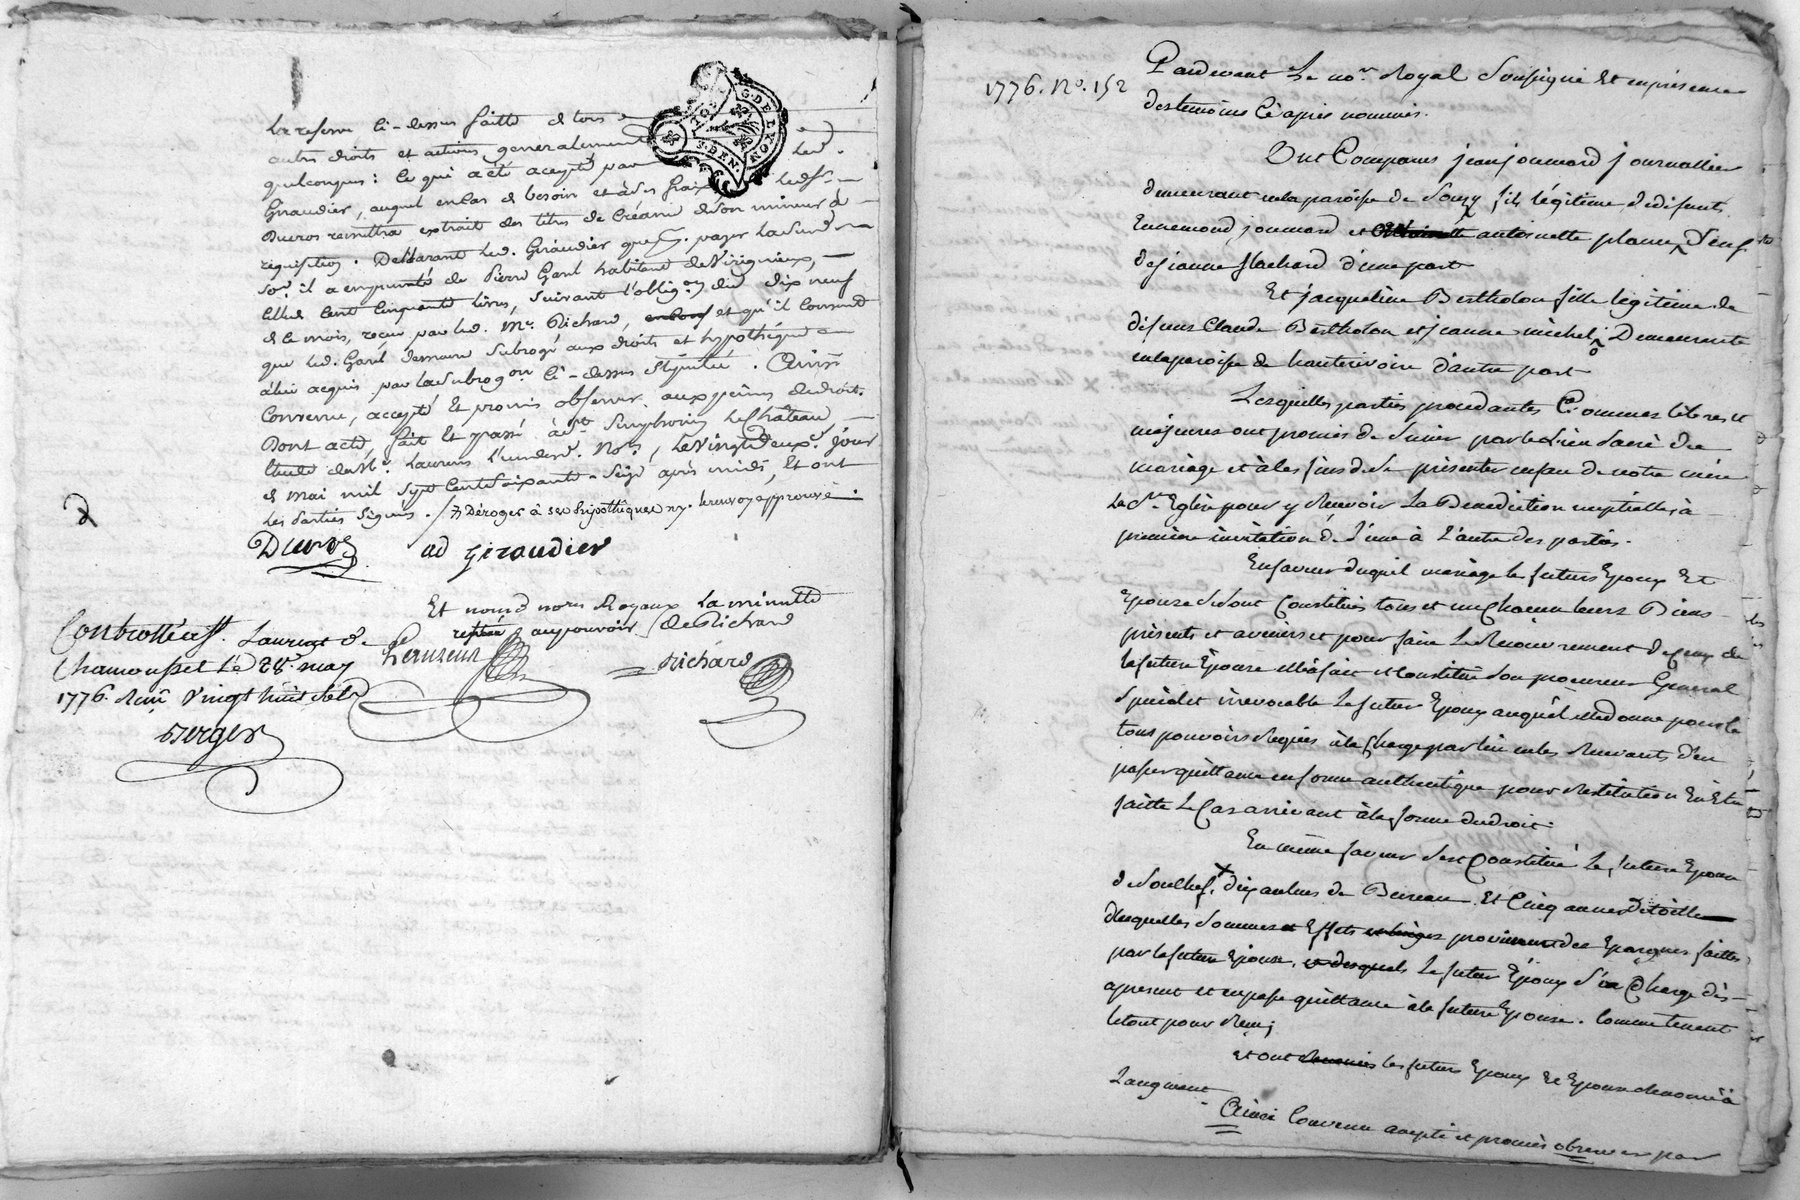 La reserve ci-dessus faitte de tous
autres droits et actions generalement
quelconques : ce qui a été accepté par led.
Giraudier, auquel en cas de besoin et à ses fraix led. Sr.
Ducros remettra extrait des titres de Créance de son mineur à
requisition. Declarant led. Giraudier que pour payer lad.
Som. il a emprunté de Pierre Garil habitant de Virigneux,
celle cent cinquante livres, suivant l'obligon du dix neuf
de ce mois, recue par led. Me. Richard, et qu'il consend
que led. Garil demeure subrogé aux droits et hypothéque
à lui acquis par la subrogon ci-dessus stipulée. Ainsi
Convenu, accepté Et promis observer aux peines de droit.
Dont acte, fait Et passé à St Simphorien le Château
Etude de Me. Lauzeur l'un desd. Nores, le vingt deuxe. jour
de mai mil sept cent soixante-seize après midi, Et ont
les Parties Signé. / Déroger à ses hipothèques ny. le renvoy approuvé.
Ducros ad Giraudier
Et nous nores Royaux La minutte
au pouvoir de Richard
Controllé à St. Laurent de
Chamousset le 28e. may
1776. Reçu Vingt huit sols
Berger
Richard
G. DE LYON
3. DEN.
1776. No. 152
Pardevant Le nore Royal Soussigné Et en présence
des temoins Cy après nommés.
Ont Comparus jean joumard journallier
demeurant en la paroisse de Souzy fils légitime de defunts
Ennemond joumard et antoinette
de jeanne flachard d'une part
Et jacqueline Bertholon fille legitime de
defunts Claude Bertholon et jeanne michel, Demeurante
en la paroisse de hauterivoire d'autre part
Lesquelles parties procedantes Comme libres et
majeures ont promis de s'unir par le Lien Sacré de
mariage et à les fins de se présenter en face de notre mère
La Ste Eglise pour y Recevoir La Benediction nuptialle, à
première invitation de L'une à L'autre des parties.
En faveur duquel mariage les futurs Epoux Et
Epouse se sont Constitués tous et un Chacun leurs Biens
présents et avenirs et pour faire Le Recouvrement de ceux de
la future Epouse elle a fait et constitué son procureur General
Special et irrevocable Le futur Epoux auquel elle donne pour ce
tous pouvoirs Requis à la Charge par lui en les Recevants d'en
passer quittance en forme authentique pour Restitution En Etre
faitte Le Cas arrivant à la forme du droit.
En même faveur s'est Constitué La future Epouse
dix aulnes de Bureau Et Cinq aulnes de toille
desquelles Sommes Effets provienent des Epargnes faittes
par la future Epouse, Le futur Epoux s'en Charge dès
apresent et en passe quittance à la future Epouse. Comme tenant
le tout pour Recu;
Et ont les futurs Epoux Et Epouse Renoncé à
L'augment
Ainsi Convenu accepté et promis observer par